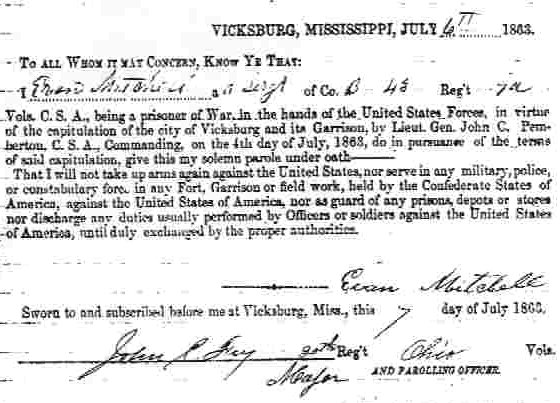 VICKSBURG, MISSISSIPPI, JULY 6th 1863.
TO ALL WHOM IT MAY CONCERN, KNOW YE THAT:
I Evan Mitchell a Sergt of Co. B 43 Reg't
Vols. C. S. A., being a prisoner of War, in the hands of the United States Forces, in virtue
of the capitulation of the city of Vicksburg and its Garrison, by Lieut. Gen. John C. Pem-
berton, C. S. A., Commanding, on the 4th day of July, 1863, do in pursuance of the terms
of said capitulation, give this my solemn parole under oath——
That I will not take up arms again against the United States, nor serve in any military, police,
or constabulary force in any Fort, Garrison or field work, held by the Confederate States of
America, against the United States of America, nor as guard of any prisons, depots or stores
nor discharge any duties usually performed by Officers or soldiers against the United States
of America, until duly exchanged by the proper authorities.
Evan Mitchell
Sworn to and subscribed before me at Vicksburg, Miss., this 7 day of July 1863.
John C Fry 20th Reg't Ohio Vols.
Major AND PAROLLING OFFICER.